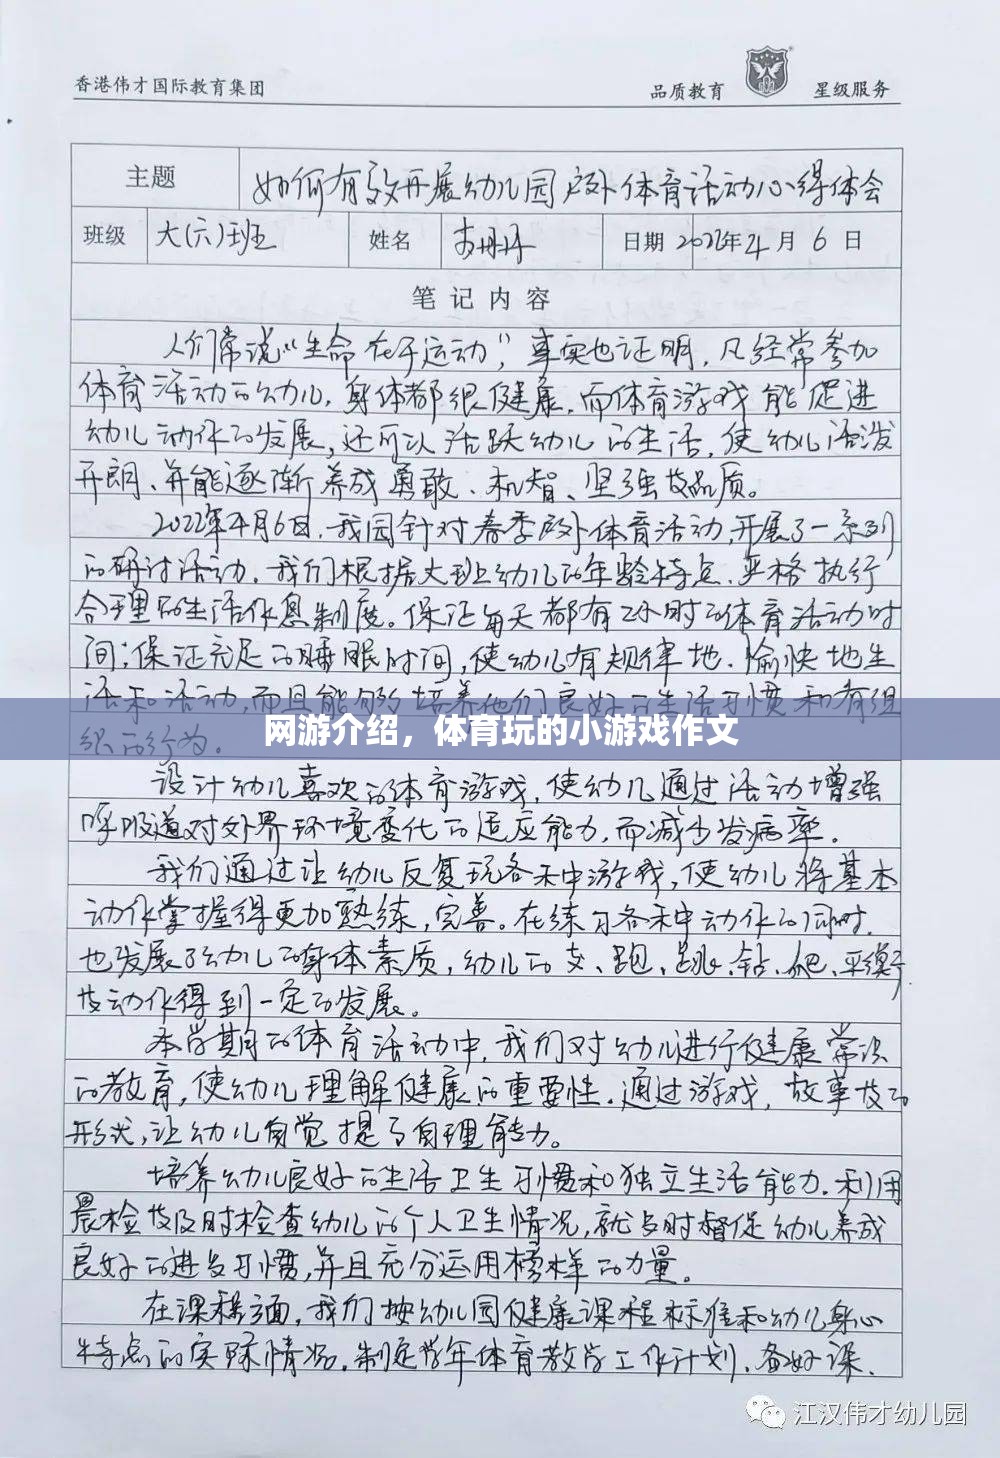 香港伟才国际教育集团 品质教育 星级服务
主题 如何有效开展幼儿园户外体育活动心得体会
班级 大(六)班 姓名 日期 2022年4月6日
笔记内容
人们常说“生命在于运动”,事实也证明,凡经常参加
体育活动的幼儿,身体都很健康,而体育游戏能促进
幼儿动作的发展,还可以活跃幼儿的生活,使幼儿活泼
开朗、并能逐渐养成勇敢、机智、坚强等品质。
2022年4月6日,我园针对春季户外体育活动,开展了一系列
的研讨活动。我们根据大班幼儿的年龄特点,严格执行
合理的生活作息制度。保证每天都有2小时的体育活动时
间;保证充足的睡眠时间,使幼儿有规律地、愉快地生
活和活动,而且能够培养他们良好的生活习惯和有组
织的行为。
网游介绍，体育玩的小游戏作文
设计幼儿喜欢的体育游戏,使幼儿通过活动增强
呼吸道对外界环境变化的适应能力,而减少发病率。
我们通过让幼儿反复玩各种游戏,使幼儿将基本
动作掌握得更加熟练,完善。在练习各种动作的同时,
也发展了幼儿的身体素质,幼儿的走、跑、跳、钻、爬、平衡
等动作得到一定的发展。
本学期的体育活动中,我们对幼儿进行健康常识
的教育,使幼儿理解健康的重要性。通过游戏,故事等的
形式,让幼儿自觉提了自理能力。
培养幼儿良好的生活卫生习惯和独立生活能力。利用
晨检等及时检查幼儿的个人卫生情况,就与时督促幼儿养成
良好的进步习惯,并且充分运用榜样的力量。
在课程方面,我们按幼儿园健康课程标准和幼儿身心
特点的实际情况,制定学年体育教学工作计划,备好课,
江汉伟才幼儿园